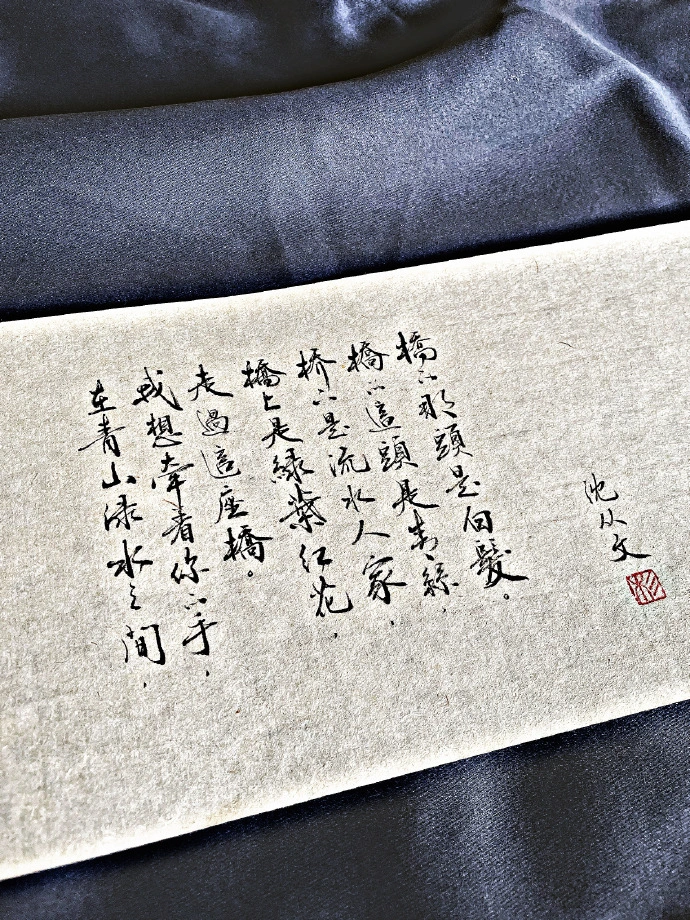 在青山渌水之間，
我想牽着你的手，
走過這座橋。
橋上是緑葉红花，
桥下是流水人家，
橋的這頭是青絲，
橋的那頭是白髮。
沈从文